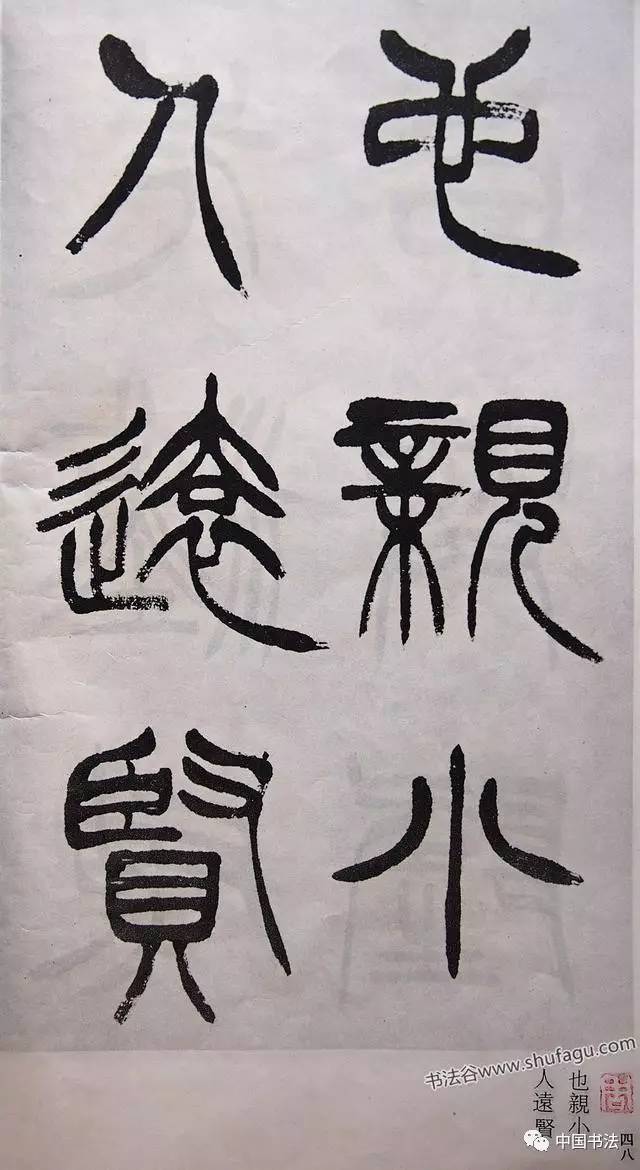 也親小
人遠賢
书法谷www.shufagu.com
也親小
人遠賢
四八
中国书法